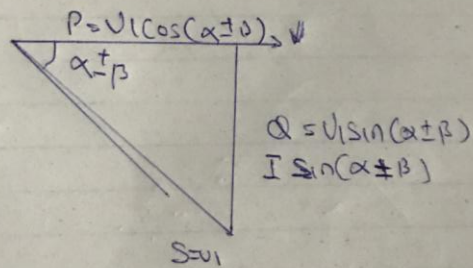 P=VICos(α±β) V
α±β
Q = VISin(α±β)
I Sin(α±β)
S=VI